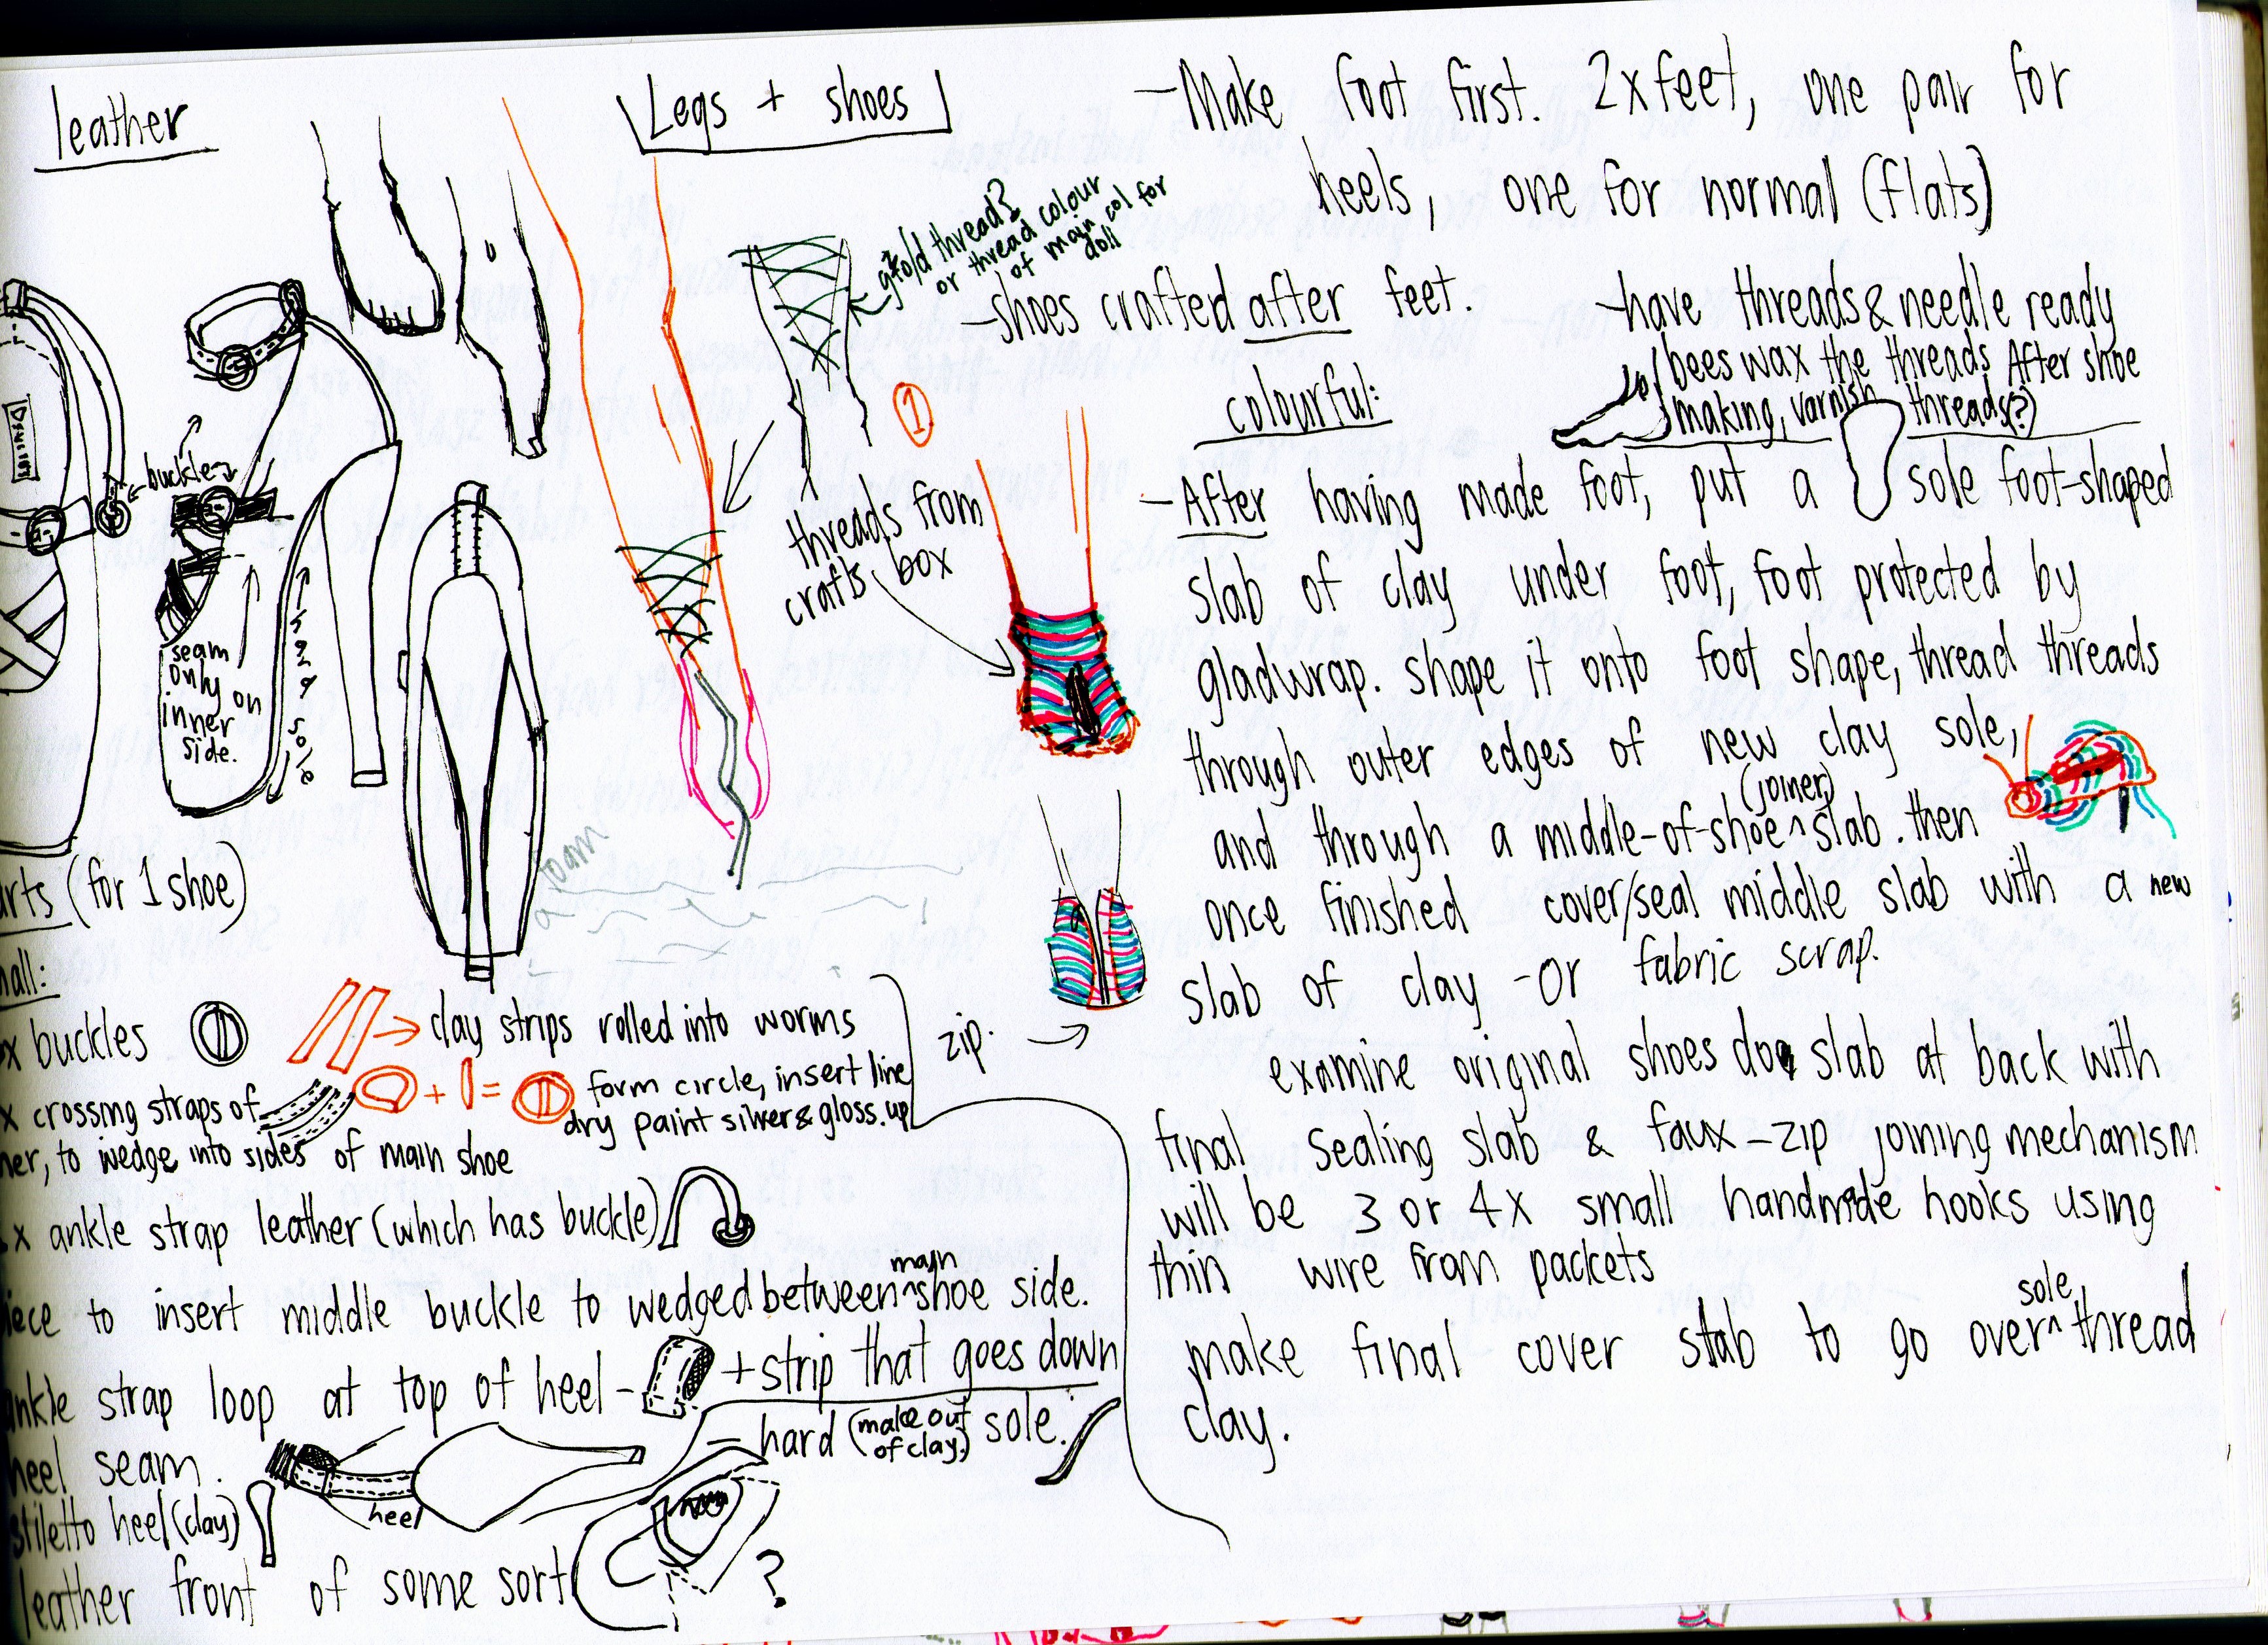 leather
Legs + shoes
gold thread?
or thread colour
of main col for
doll
buckle
seam
only on
inner
side.
sole
threads from
crafts box
1
foam
zip.
(for 1 shoe)
x buckles
clay strips rolled into worms
+ =
form circle, insert line
dry paint silver & gloss. up
x crossing straps of
to wedge into sides of main shoe
x ankle strap leather (which has buckle)
main
to insert middle buckle to wedged between ^ shoe side.
ankle strap loop at top of heel - + strip that goes down
heel seam.
- hard (make out of clay.) sole.
stiletto heel (clay)
heel
leather front of some sort
?
- Make foot first. 2x feet, one pair for
heels, one for normal (flats)
- shoes crafted after feet.
- have threads & needle ready
bees wax the threads After shoe
making, varnish threads(?)
colourful:
- After having made foot, put a sole foot-shaped
slab of clay under foot, foot protected by
gladwrap. shape it onto foot shape, thread threads
through outer edges of new clay sole,
(joiner)
and through a middle-of-shoe ^ slab. then
once finished cover/seal middle slab with a new
slab of clay - or fabric scrap.
examine original shoes do slab at back with
final sealing slab & faux-zip joining mechanism
will be 3 or 4x small handmade hooks using
thin wire from packets
sole
make final cover slab to go over ^ thread
clay.